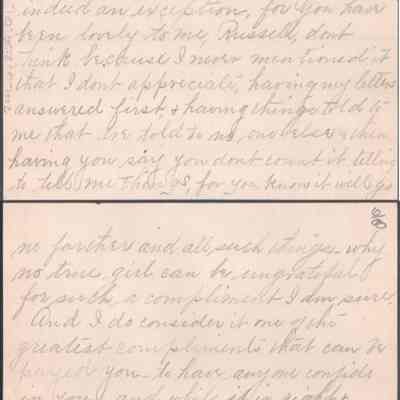 indeed an exception, for you have
been lovely to me, Russell, dont
think because I never mentioned it
that I dont appreciate, having my letters
answered first, & having things told to
me that are told to no, one else & then
having you say you dont count it telling
to tell me things, for you know it will go
no farther and all such things - why
no true girl can be ungrateful
for such a compliment I am sure.
And I do consider it one of the
greatest compliments that can be
you - to have anyone confide
in you and while it is